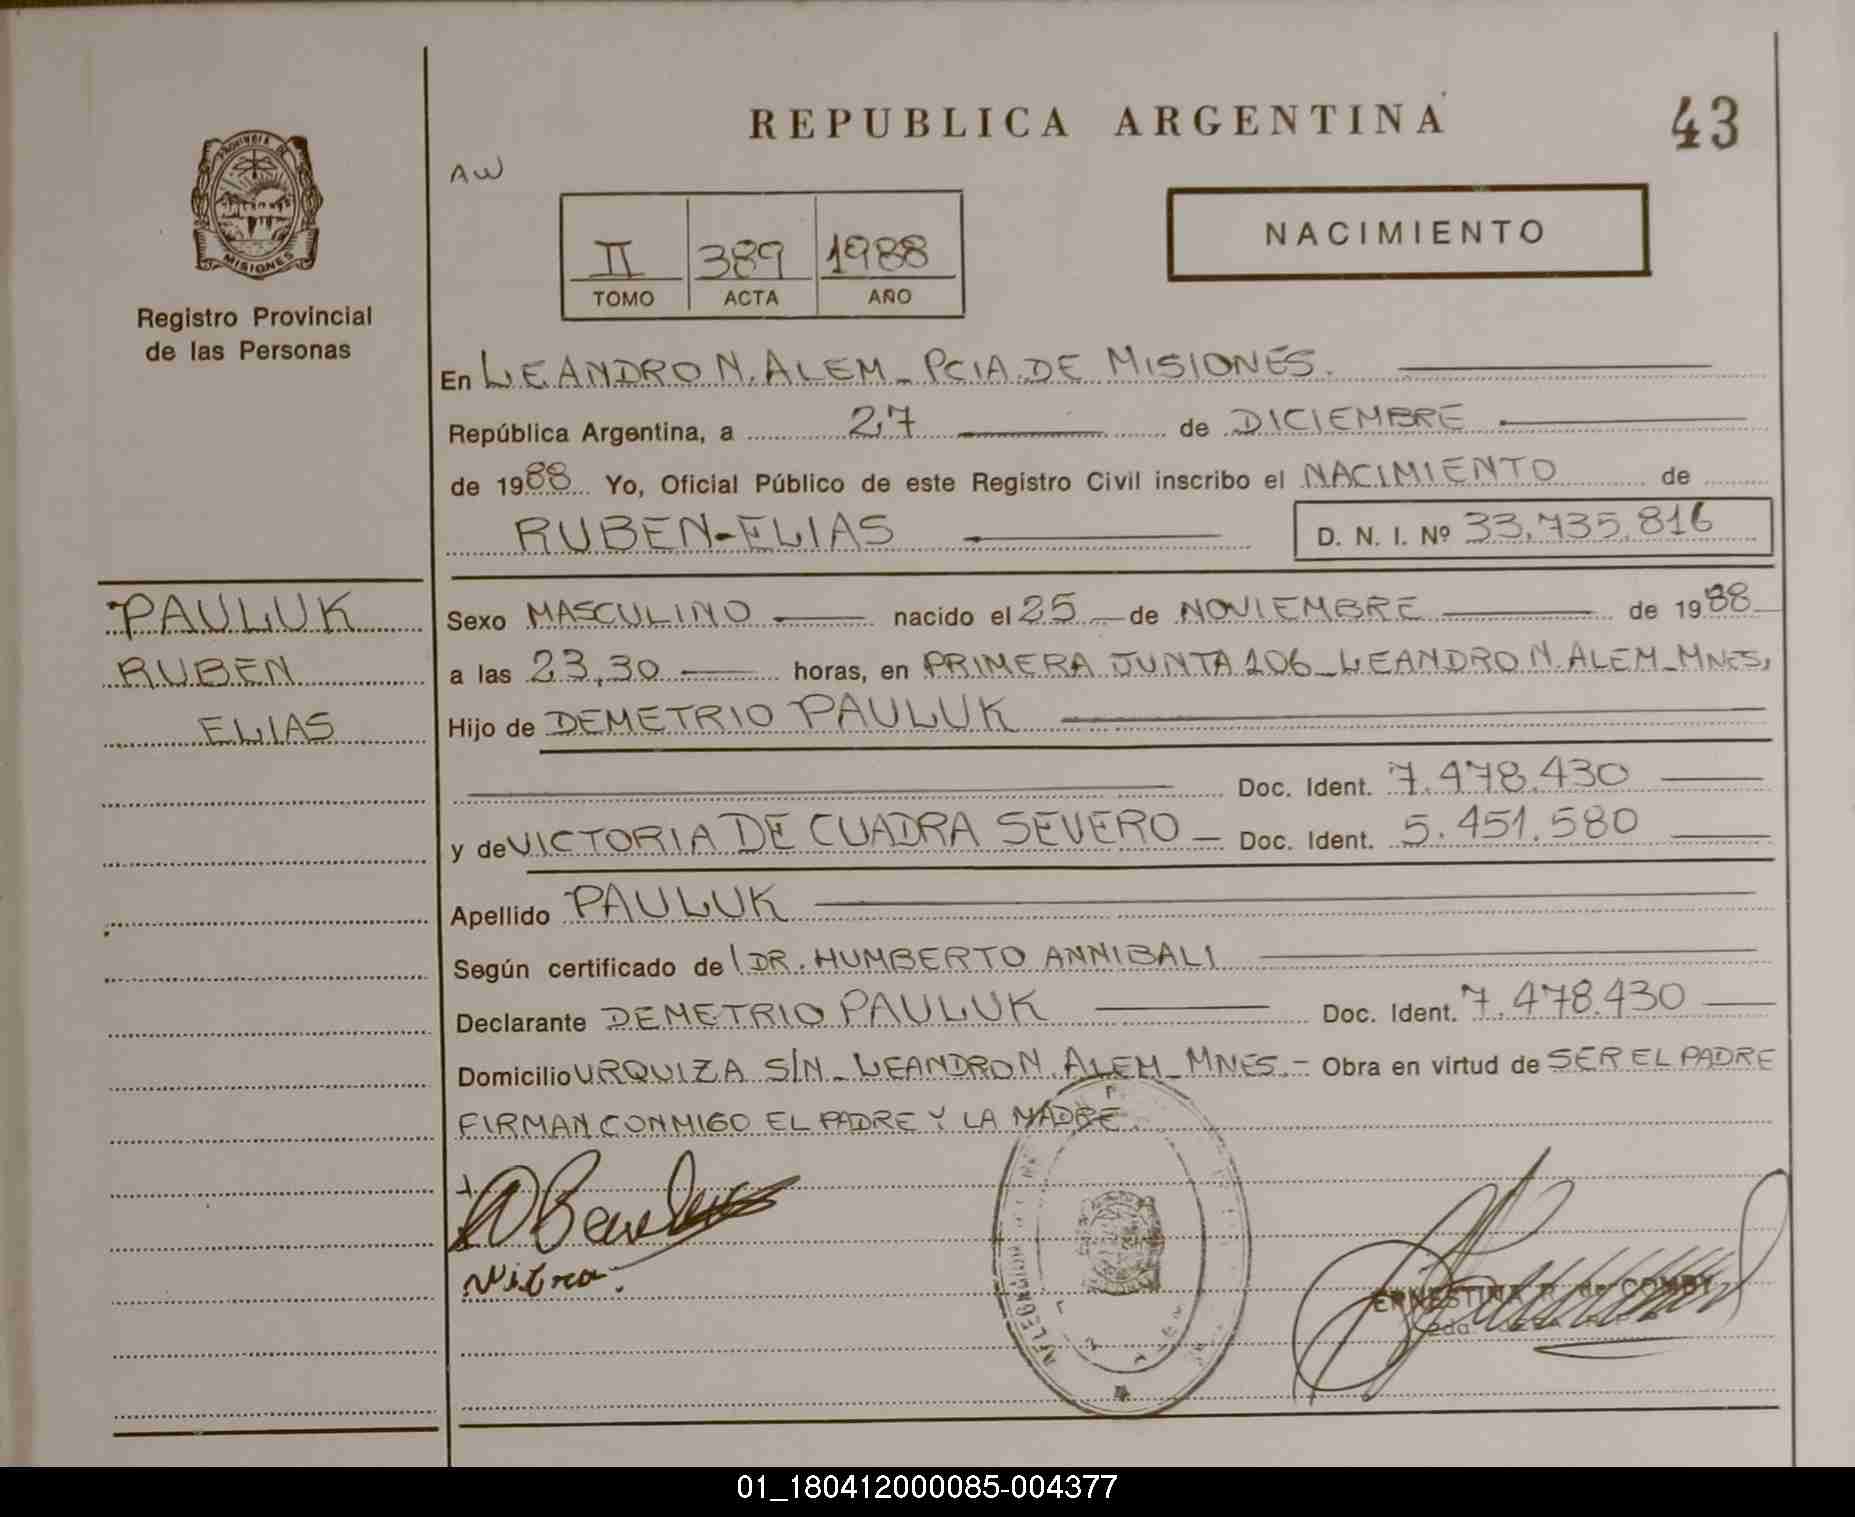 REPUBLICA ARGENTINA
43
AW
PROVINCIA DE
MISIONES
Registro Provincial
de las Personas
II 389 1988
TOMO ACTA AÑO
NACIMIENTO
En LEANDRO N. ALEM - PCIA. DE MISIONES.
República Argentina, a 27 de DICIEMBRE
de 1988 Yo, Oficial Público de este Registro Civil inscribo el NACIMIENTO de
RUBEN-ELIAS D. N. I. Nº 33.735.816
PAULUK
RUBEN
ELIAS
Sexo MASCULINO nacido el 25 de NOVIEMBRE de 1988
a las 23,30 horas, en PRIMERA JUNTA 206 - LEANDRO N. ALEM - MNES,
Hijo de DEMETRIO PAULUK
Doc. Ident. 7.478.430
y de VICTORIA DE CUADRA SEVERO - Doc. Ident. 5.451.580
Apellido PAULUK
Según certificado de DR. HUMBERTO ANNIBALI
Declarante DEMETRIO PAULUK Doc. Ident. 7.478.430
Domicilio URQUIZA S/N - LEANDRO N. ALEM - MNES. - Obra en virtud de SER EL PADRE
FIRMAN CONMIGO EL PADRE Y LA MADRE
ERNESTINA R. de COMBY
2da.
01_180412000085-004377